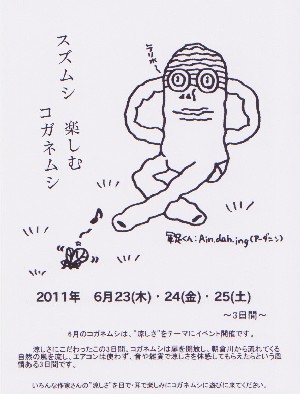 スズムシ
楽しむ
コガネムシ
2011年　6月23(木)・24(金)・25(土)
～3日間～
6月のコガネムシは、"涼しさ"をテーマにイベント開催です。
涼しさにこだわったこの3日間、コガネムシは扉を開放し、朝倉川から流れてくる
自然の風を流し、エアコンは使わず、食や雑貨で涼しさを体感してもらえたらという風
情ある3日間です。
いろんな作家さんの"涼しさ"を目で・耳で楽しみにコガネムシに遊びに来てください。